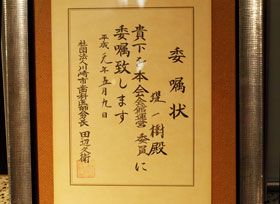 委嘱状
堤一樹殿
貴下を本会会館運営委員に
委嘱致します
平成元年五月九日
社団法人川崎市歯科医師会長 田辺久衛